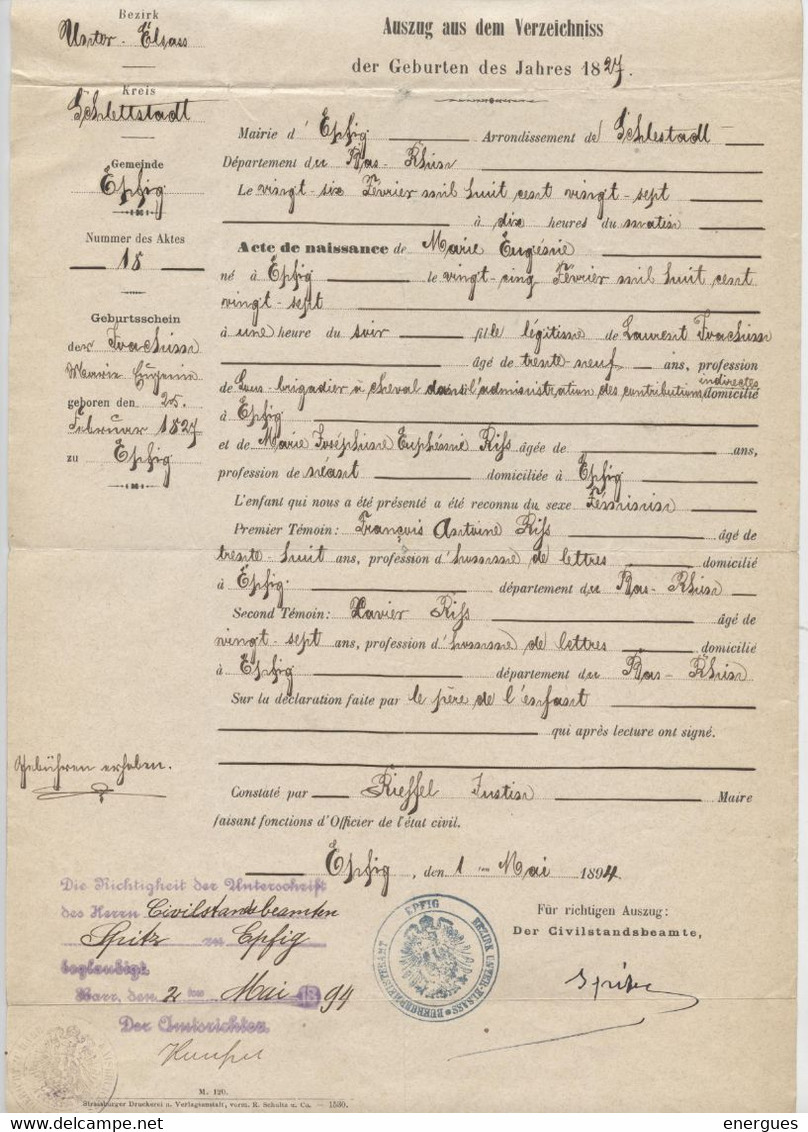 Bezirk
Unter-Elsass
Kreis
Schlettstadt
Gemeinde
Epfig
Nummer des Aktes
18
Geburtsschein
der Joachim
Marie Eugenie
geboren den 25.
Februar 1827
zu Epfig
Gebühren erhoben.
Auszug aus dem Verzeichniss
der Geburten des Jahres 1827.
Mairie d' Epfig Arrondissement de Schlestadt
Département du Bas-Rhin
Le vingt-six Février mil huit cent vingt-sept
à dix heures du matin
Acte de naissance de Marie Eugénie
né à Epfig le vingt-cinq Février mil huit cent
vingt-sept
à une heure du soir fille légitime de Laurent Joachim
âgé de trente-neuf ans, profession
de Sous-brigadier à cheval dans l'administration des contributions indirectes domicilié
à Epfig
et de Marie Joséphine Euphémie Riss âgée de ans,
profession de néant domiciliée à Epfig
L'enfant qui nous a été présenté a été reconnu du sexe Féminin
Premier Témoin: François Antoine Riss âgé de
trente-huit ans, profession d'homme de lettres domicilié
à Epfig département du Bas-Rhin
Second Témoin: Xavier Riss âgé de
vingt-sept ans, profession d'homme de lettres domicilié
à Epfig département du Bas-Rhin
Sur la déclaration faite par le père de l'enfant
qui après lecture ont signé.
Constaté par Rieffel Justin Maire
faisant fonctions d'Officier de l'état civil.
Epfig, den 1ten Mai 1894
Für richtigen Auszug:
Der Civilstandsbeamte,
Spitz
BÜRGERMEISTERAMT EPFIG BEZIRK UNTER-ELSASS
Die Richtigkeit der Unterschrift
des Herrn Civilstandsbeamten
Spitz zu Epfig
beglaubigt
Barr, den 2ten Mai 1894
Der Amtsrichter
M. 120.
Strassburger Druckerei u. Verlagsanstalt, vorm. R. Schultz u. Co. — 1530.
www.delcampe.net
energues